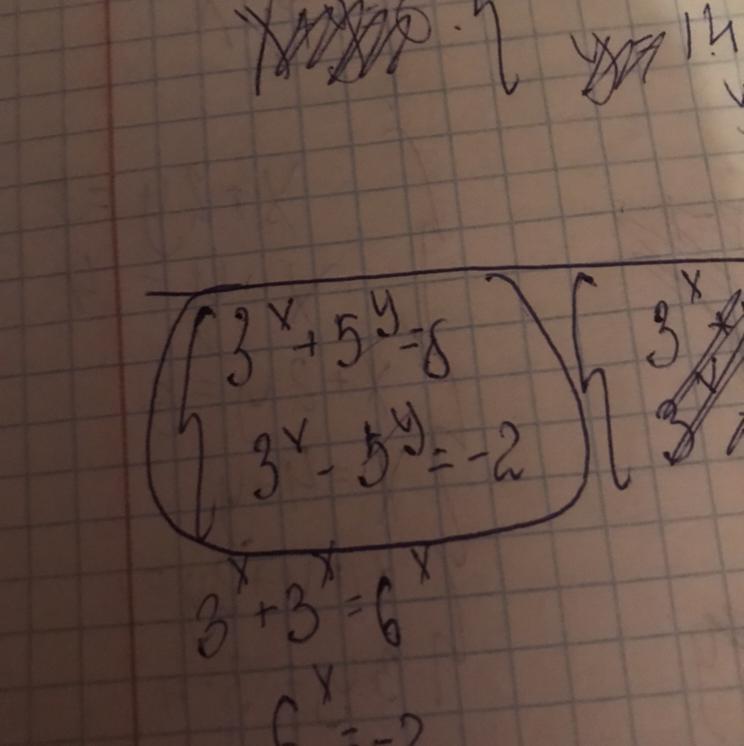 3^x + 5^y = 8
3^x - 5^y = -2
3^x
3
3^x + 3^x = 6^x
6^x = -2